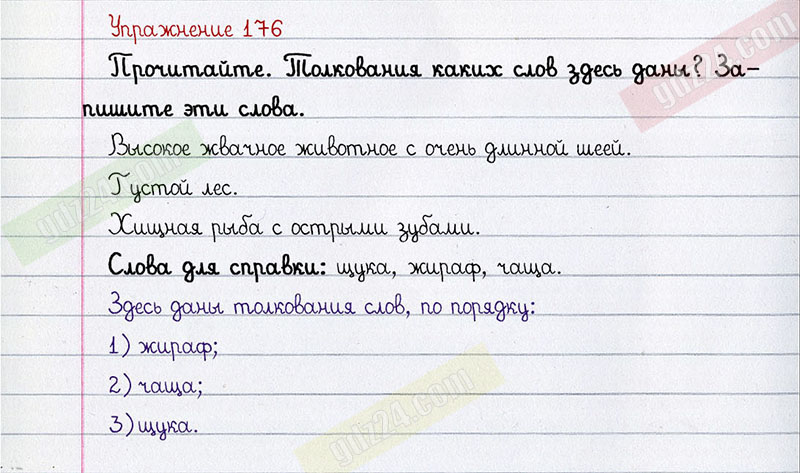 Упражнение 176
Прочитайте. Толкования каких слов здесь даны? За-
пишите эти слова.
Высокое жвачное животное с очень длинной шеей.
Густой лес.
Хищная рыба с острыми зубами.
Слова для справки: щука, жираф, чаща.
Здесь даны толкования слов, по порядку:
1) жираф;
2) чаща;
3) щука.
gdz24.com
gdz24.com
gdz24.com